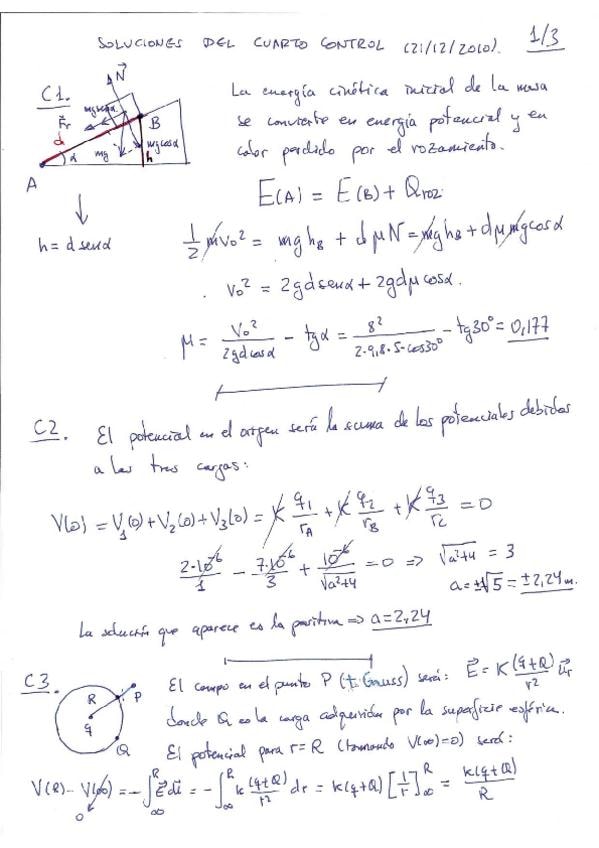 SOLUCIONES DEL CUARTO CONTROL (21/12/2010). 1/3
C1.
N⃗
mg senα
F⃗r
B
d
mg
mg cosα
α
h
A
La energía cinética inicial de la masa
se convierte en energía potencial y en
calor perdido por el rozamiento.
E(A) = E(B) + Qroz.
h = d senα
1/2 mv₀² = mgh_B + dμN = mgh_B + dμmgcosα
v₀² = 2gdsenα + 2gdμcosα.
μ = v₀²/(2gdcosα) - tgα = 8²/(2·9,8·5·cos30°) - tg30° = 0,177
C2. El potencial en el origen será la suma de los potenciales debidos
a las tres cargas:
V(0) = V₁(0) + V₂(0) + V₃(0) = K q₁/r_A + K q₂/r_B + K q₃/r_C = 0
2·10⁻⁶/1 - 7·10⁻⁶/3 + 10⁻⁶/√(a²+4) = 0 ⇒ √(a²+4) = 3
a = ±√5 = ±2,24 m.
La solución que aparece es la positiva ⇒ a = 2,24
C3.
R
P
q
Q
El campo en el punto P (t. Gauss) será: E⃗ = K (q+Q)/r² u⃗r
donde Q es la carga adquirida por la superficie esférica.
El potencial para r=R (tomando V(∞)=0) será:
V(R) - V(∞) = -∫_∞^R E⃗ dl⃗ = -∫_∞^R k (q+Q)/r² dr = k(q+Q) [1/r]_∞^R = k(q+Q)/R
0